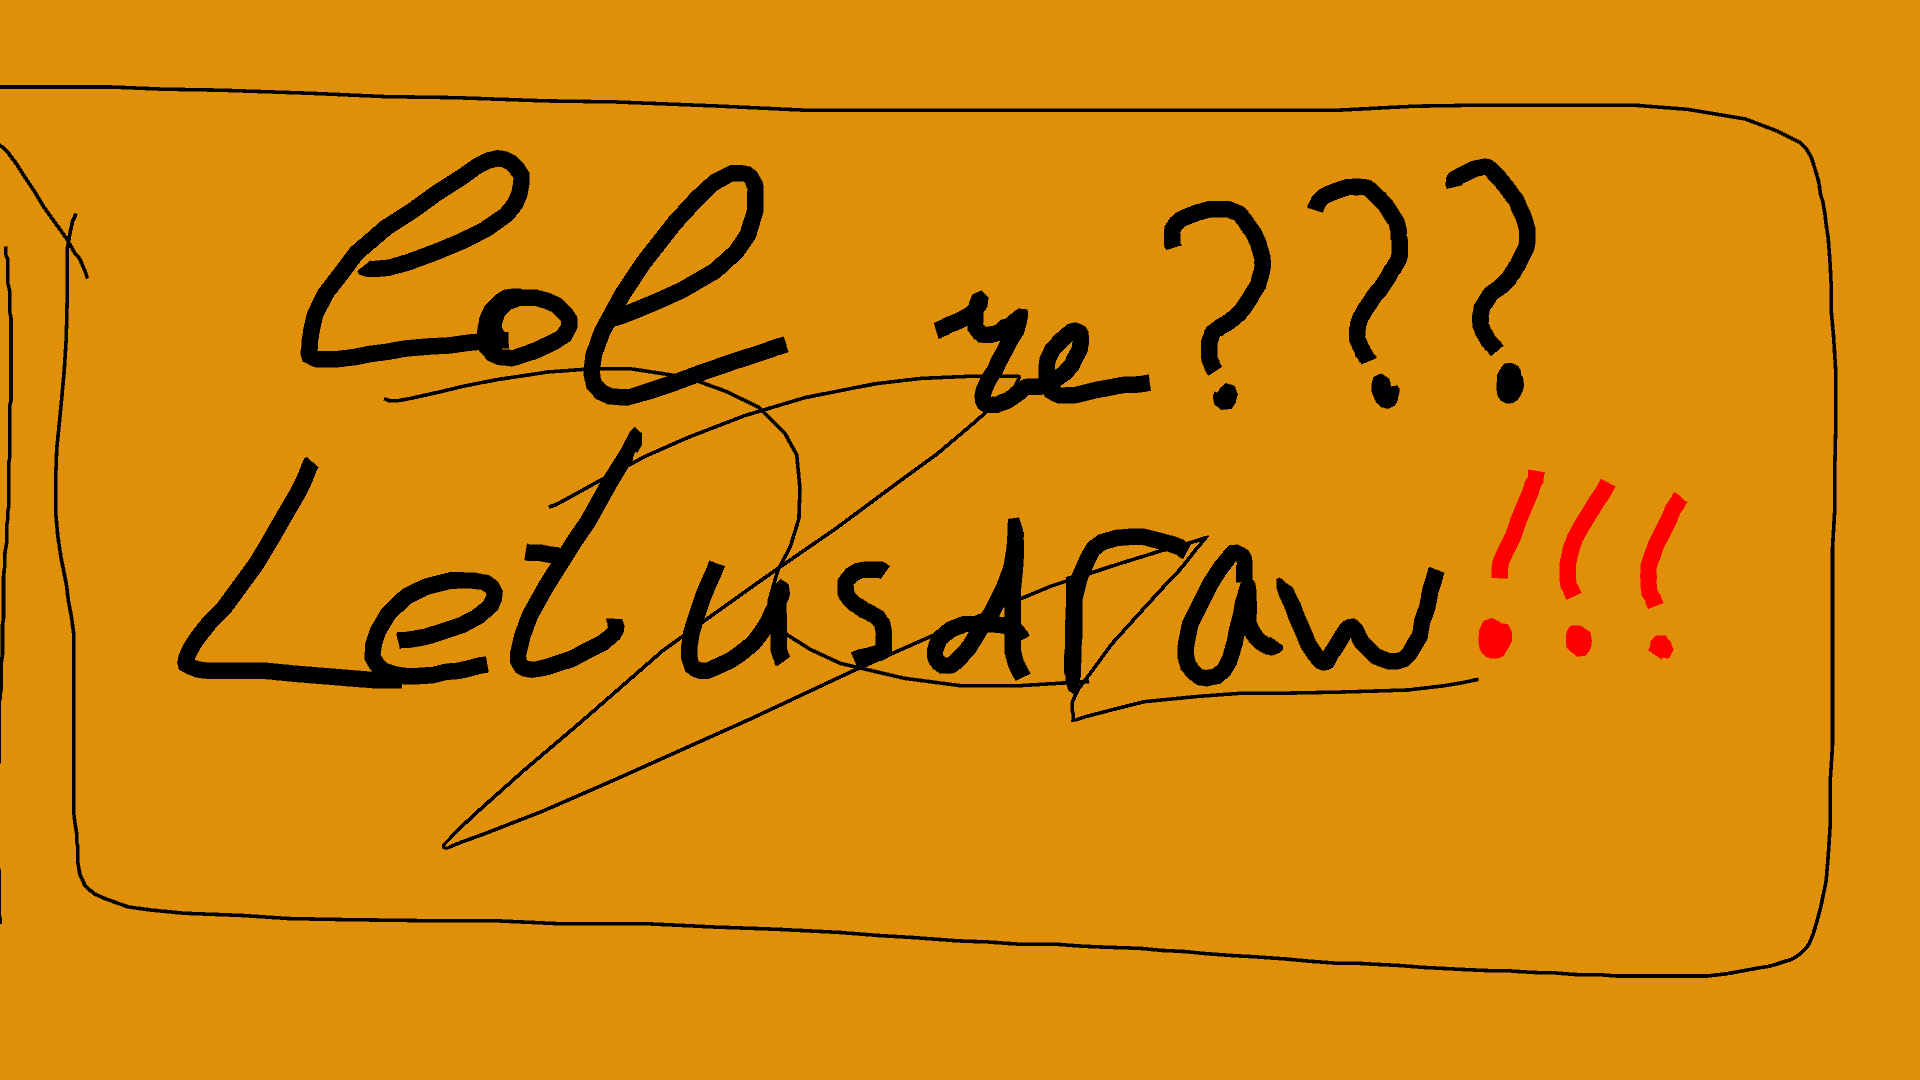 Lol ye???
Let us draw!!!